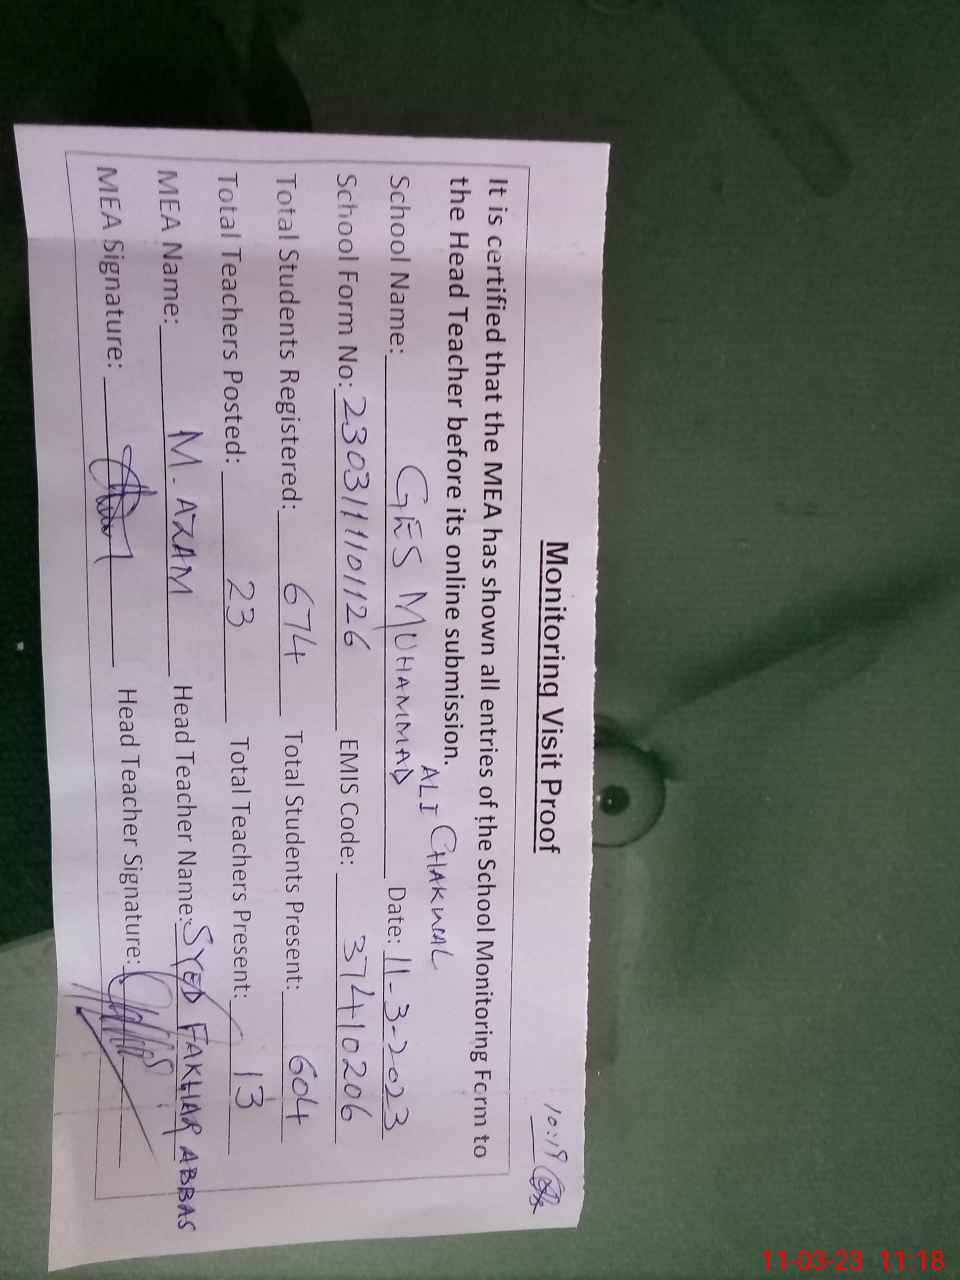 10:19
Monitoring Visit Proof
It is certified that the MEA has shown all entries of the School Monitoring Form to
the Head Teacher before its online submission.
School Name: GES MUHAMMAD ALI CHAKWAL Date: 11-3-2023
School Form No: 2303111101126 EMIS Code: 37410206
Total Students Registered: 674 Total Students Present: 604
Total Teachers Posted: 23 Total Teachers Present: 13
MEA Name: M. AZAM Head Teacher Name: SYED FAKHAR ABBAS
MEA Signature: Head Teacher Signature:
11-03-23 11:18